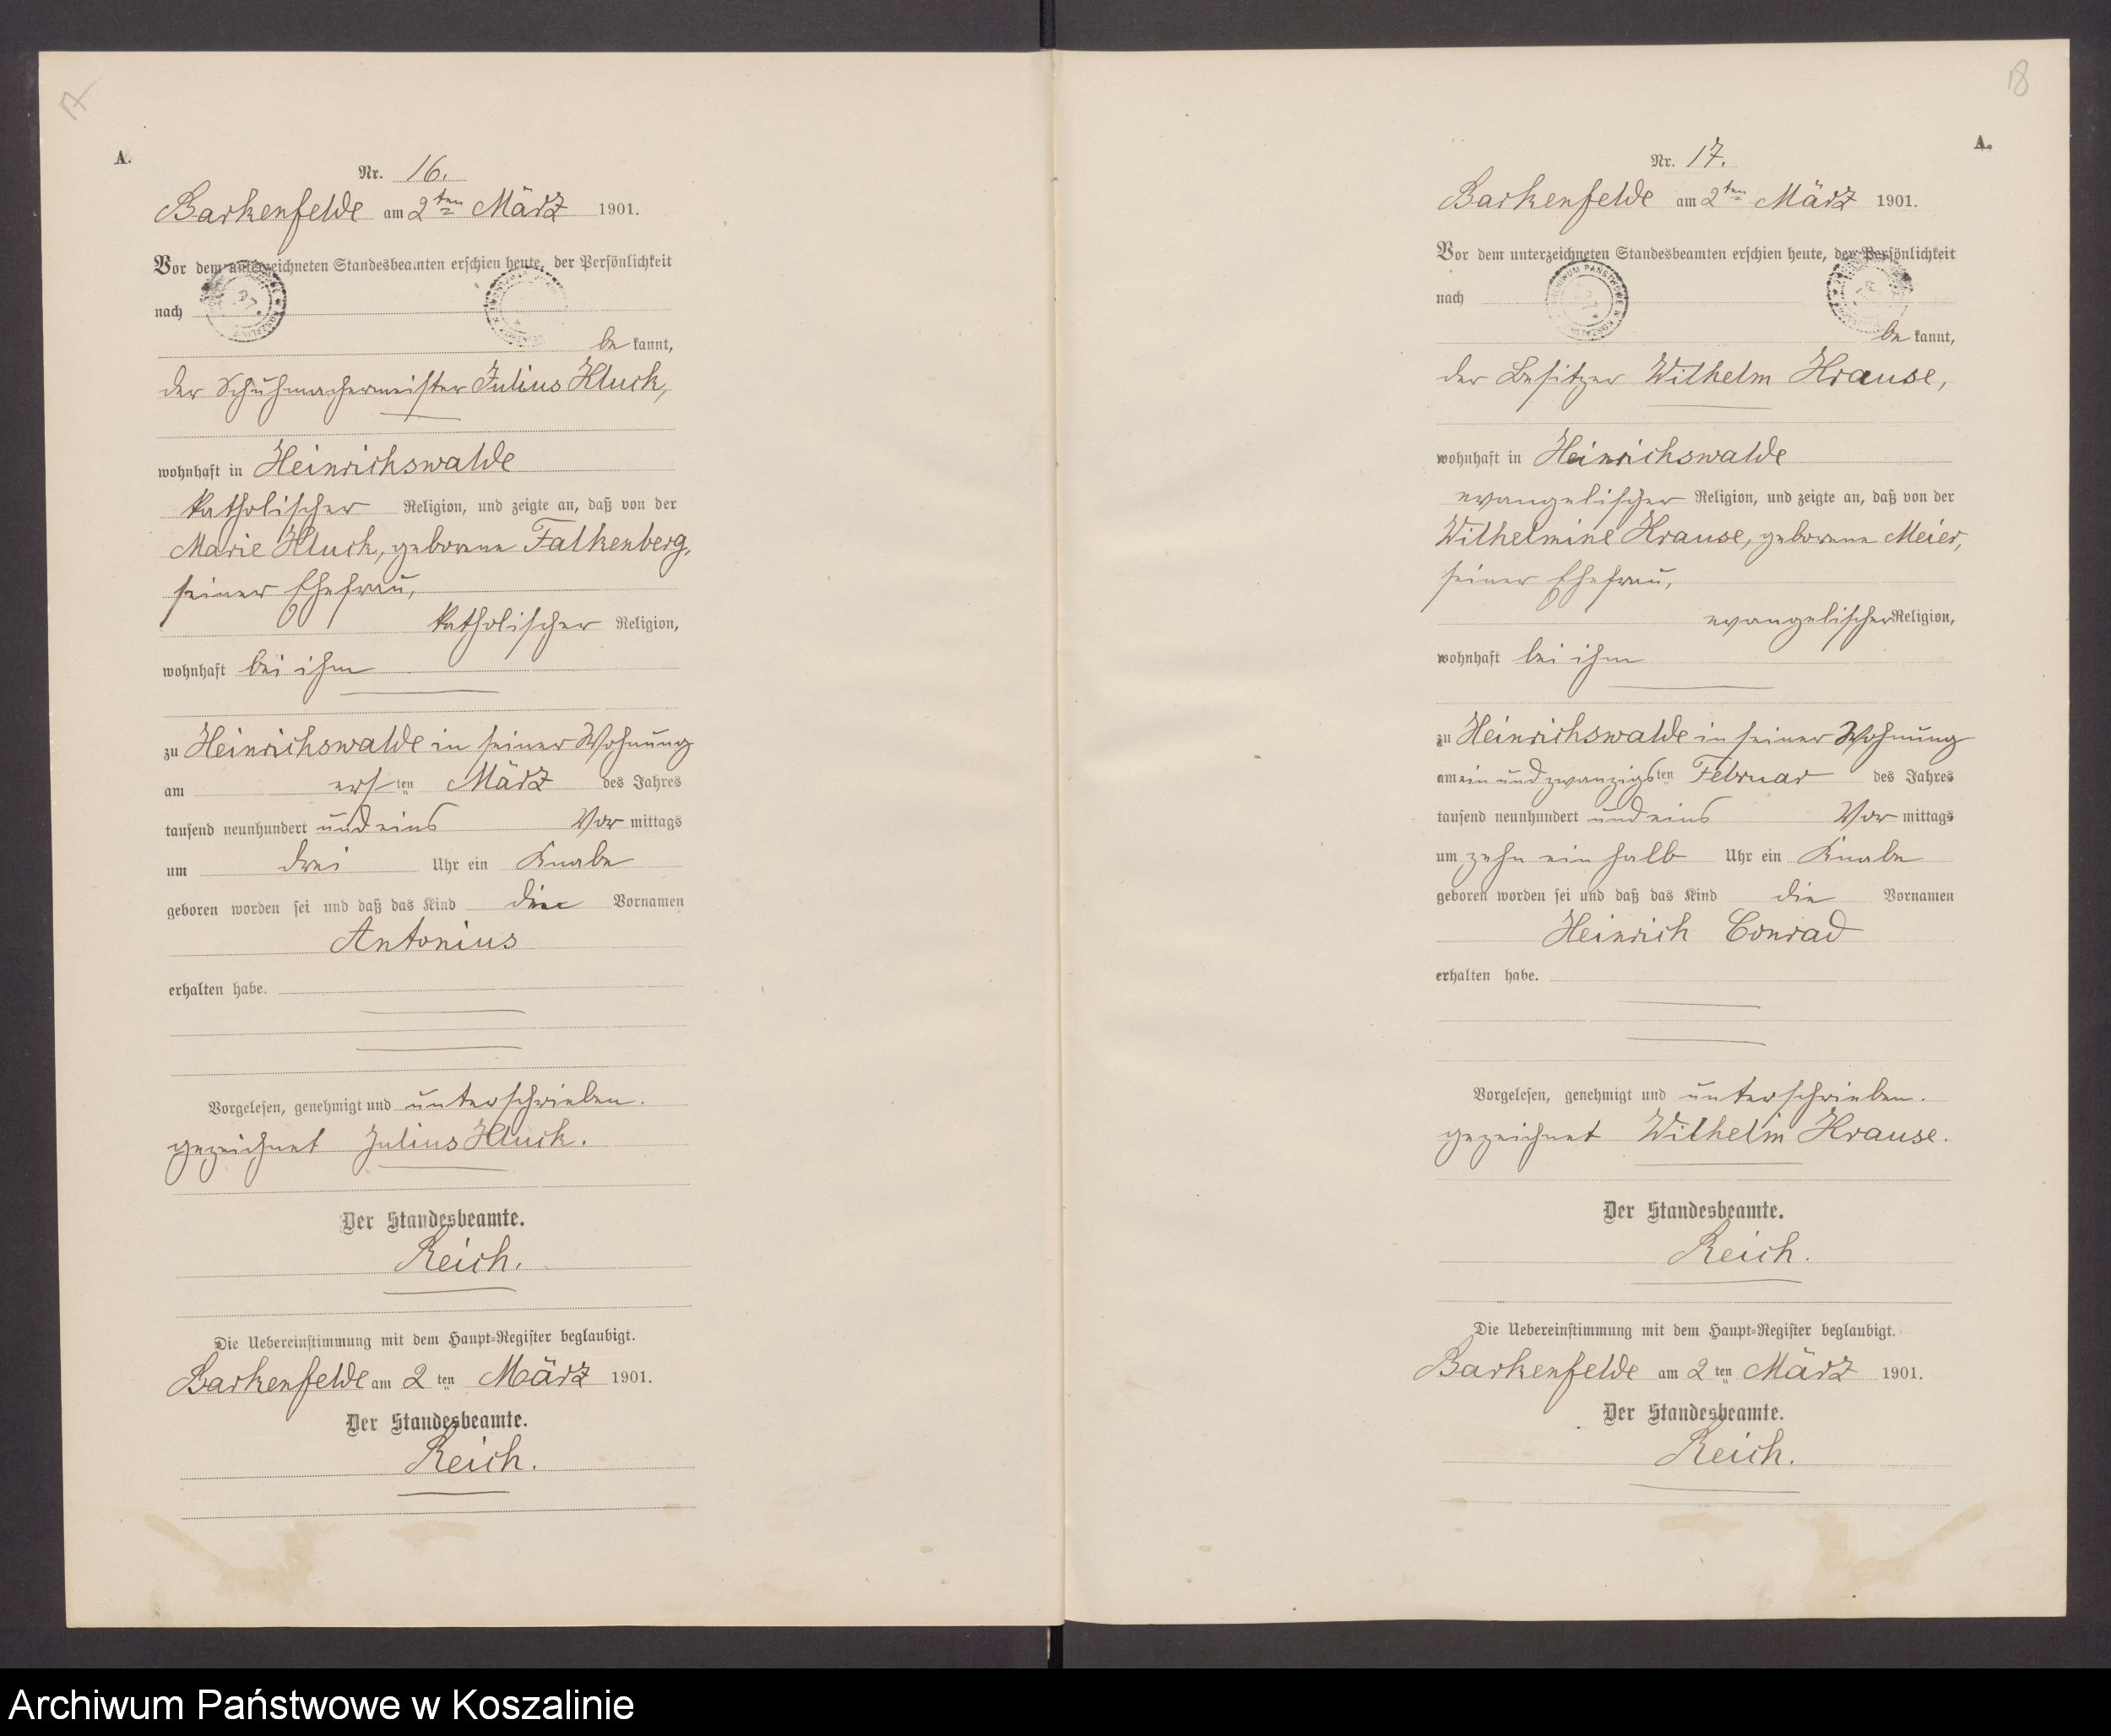 17
A.
Nr. 16.
Barkenfelde am 2ten März 1901.
Vor dem unterzeichneten Standesbeamten erschien heute, der Persönlichkeit
nach
be kannt,
der Schuhmachermeister Julius Kluck,
wohnhaft in Heinrichswalde
katholischer Religion, und zeigte an, daß von der
Marie Kluck, geborene Falkenberg,
seiner Ehefrau,
katholischer Religion,
wohnhaft bei ihm
zu Heinrichswalde in seiner Wohnung
am ersten März des Jahres
tausend neunhundert und eins Vor mittags
um drei Uhr ein Knabe
geboren worden sei und daß das Kind den Vornamen
Antonius
erhalten habe.
Vorgelesen, genehmigt und unterschrieben.
gezeichnet Julius Kluck.
Der Standesbeamte.
Reich.
Die Uebereinstimmung mit dem Haupt-Register beglaubigt.
Barkenfelde am 2 ten März 1901.
Der Standesbeamte.
Reich.
18
A.
Nr. 17.
Barkenfelde am 2ten März 1901.
Vor dem unterzeichneten Standesbeamten erschien heute, der Persönlichkeit
nach
ARCHIWUM PAŃSTWOWE W KOSZALINIE
be kannt,
der Besitzer Wilhelm Krause,
wohnhaft in Heinrichswalde
evangelischer Religion, und zeigte an, daß von der
Wilhelmine Krause, geborene Meier,
seiner Ehefrau,
evangelischer Religion,
wohnhaft bei ihm
zu Heinrichswalde in seiner Wohnung
am ein und zwanzigsten Februar des Jahres
tausend neunhundert und eins Vor mittags
um zehn ein halb Uhr ein Knabe
geboren worden sei und daß das Kind die Vornamen
Heinrich Conrad
erhalten habe.
Vorgelesen, genehmigt und unterschrieben.
gezeichnet Wilhelm Krause.
Der Standesbeamte.
Reich.
Die Uebereinstimmung mit dem Haupt-Register beglaubigt.
Barkenfelde am 2 ten März 1901.
Der Standesbeamte.
Reich.
Archiwum Państwowe w Koszalinie